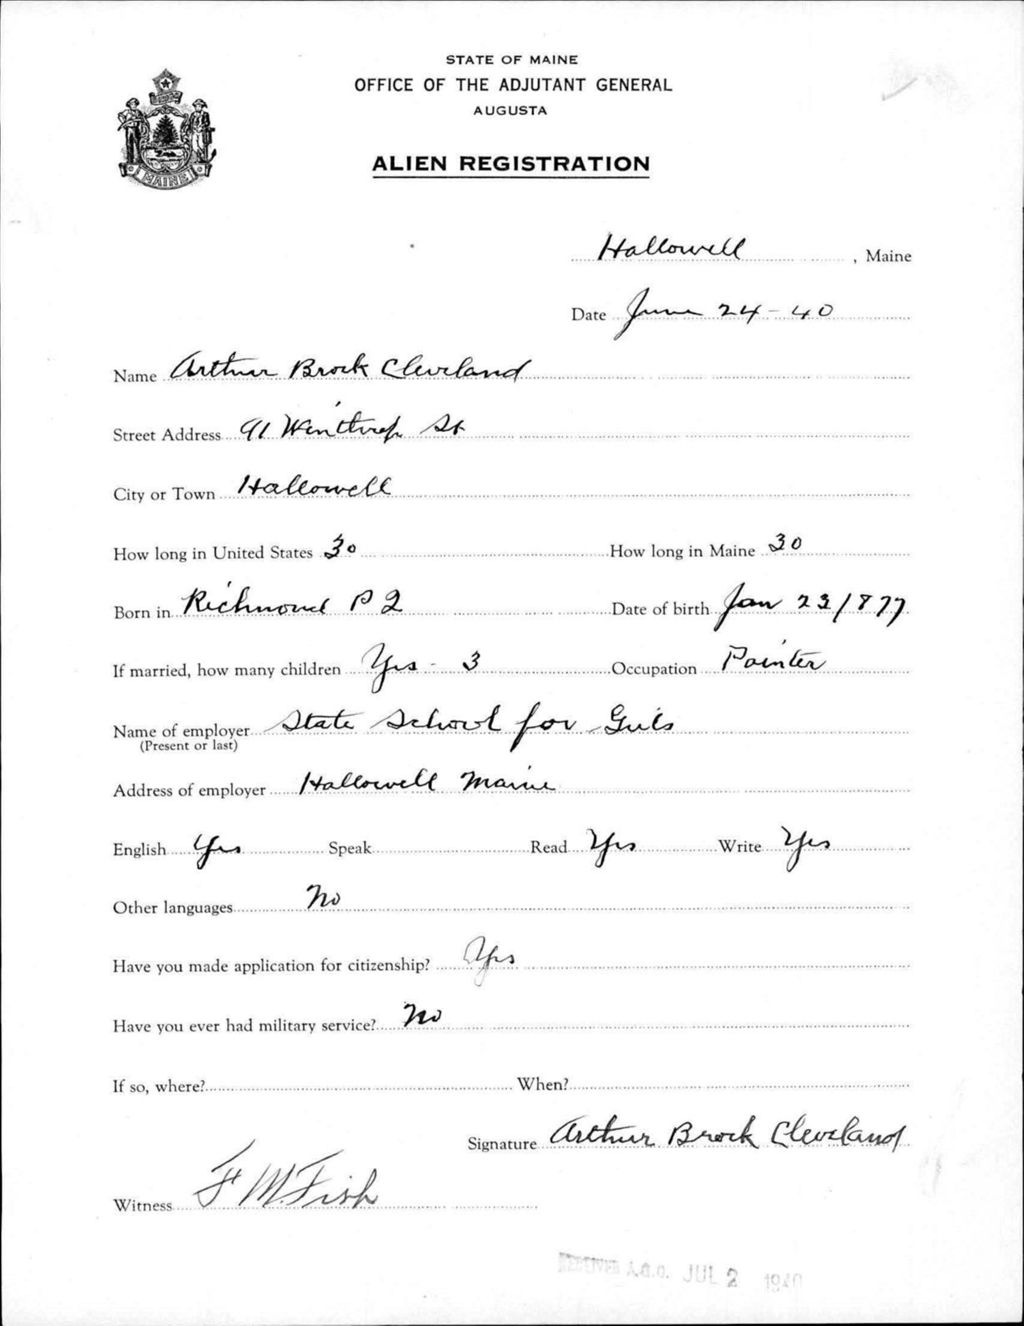 STATE OF MAINE
OFFICE OF THE ADJUTANT GENERAL
AUGUSTA
ALIEN REGISTRATION
MAINE
Hallowell, Maine
Date June 24-40
Name Arthur Brock Cleveland
Street Address 91 Winthrop St
City or Town Hallowell
How long in United States 30 How long in Maine 30
Born in Richmond P Q Date of birth Jan 23/1877
If married, how many children Yes - 3 Occupation Painter
Name of employer State School for Girls
(Present or last)
Address of employer Hallowell Maine
English Yes Speak Read Yes Write Yes
Other languages No
Have you made application for citizenship? Yes
Have you ever had military service? No
If so, where? When?
Signature Arthur Brock Cleveland
Witness F M Fish
RECEIVED A.G.O. JUL 2 1940